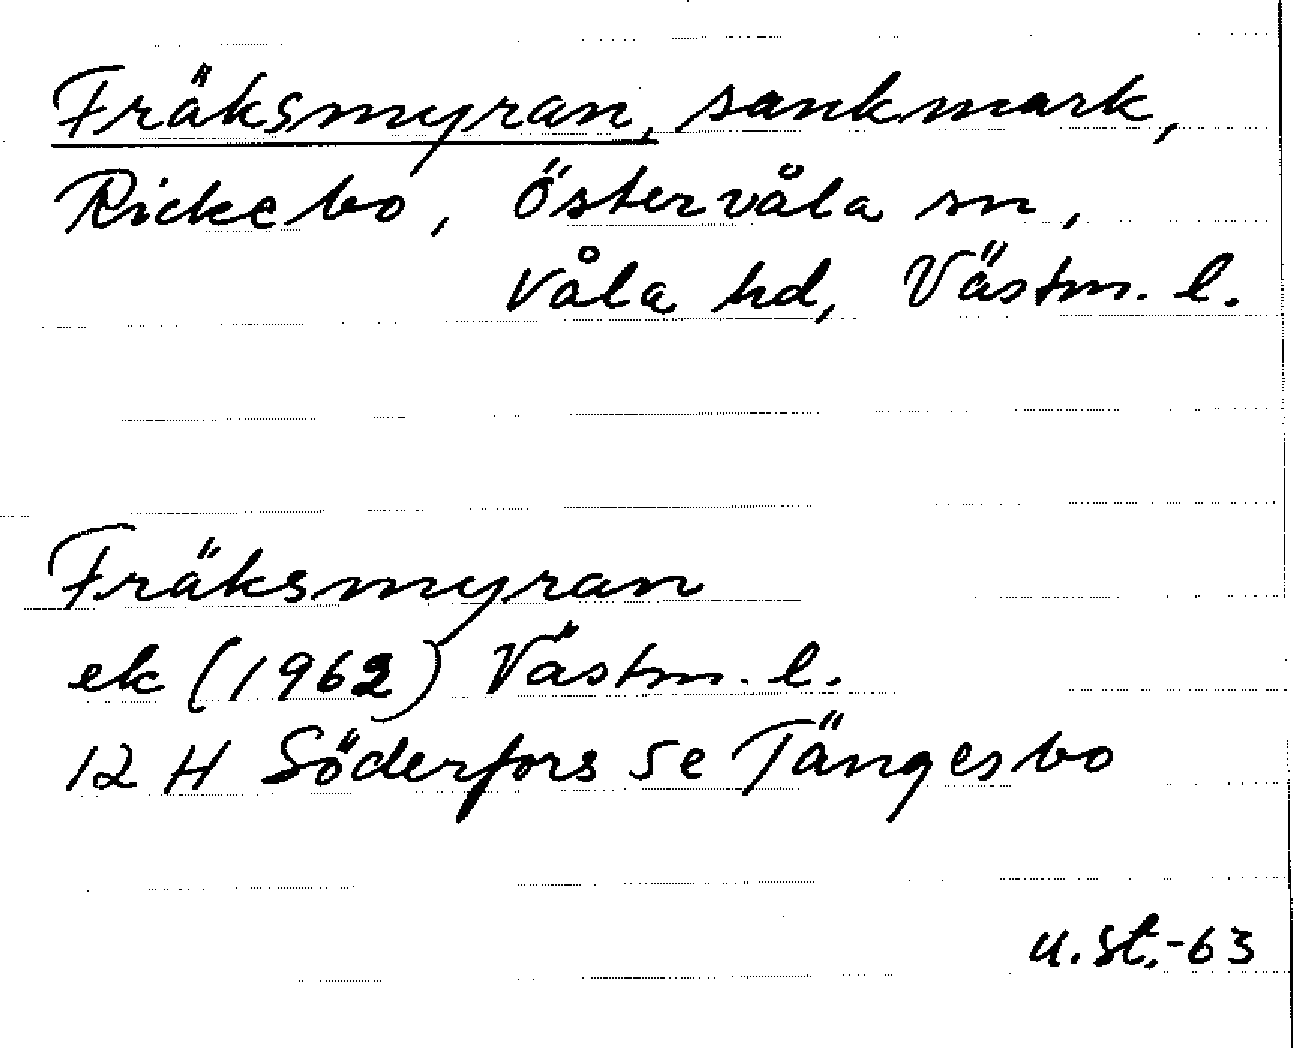 Fräksmyran, sankmark,
Rickebo, Östervåla sn,
Våla hd, Västm. l.
Fräksmyran
ek (1962) Västm. l.
12 H Söderfors 5e Tängesbo
U.St.-63